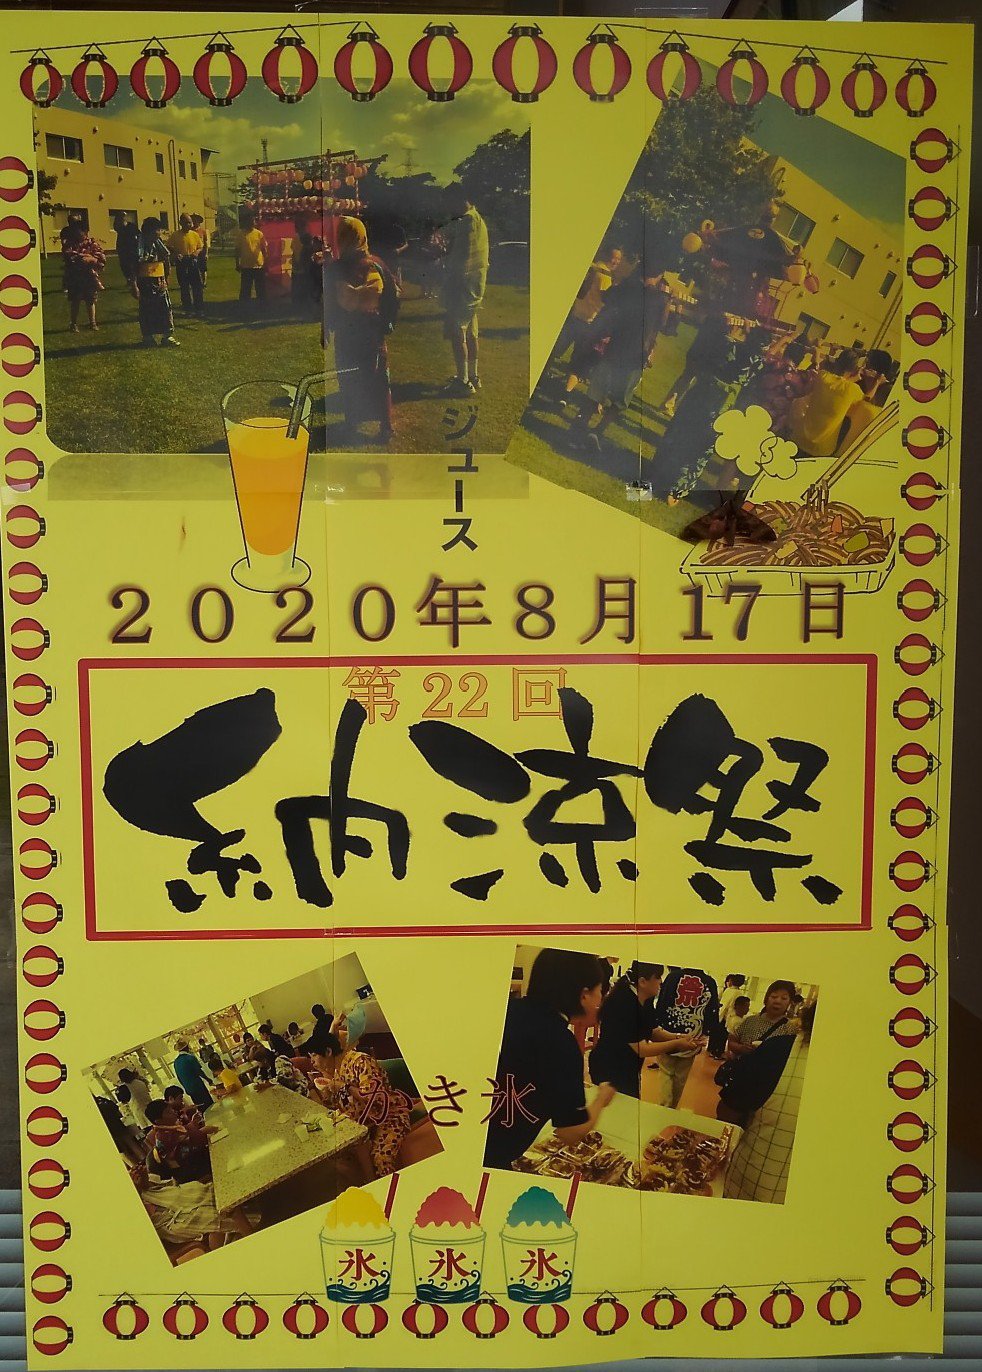 ジュース
２０２０年８月17日
第22回
納涼祭
祭
かき氷
氷 氷 氷